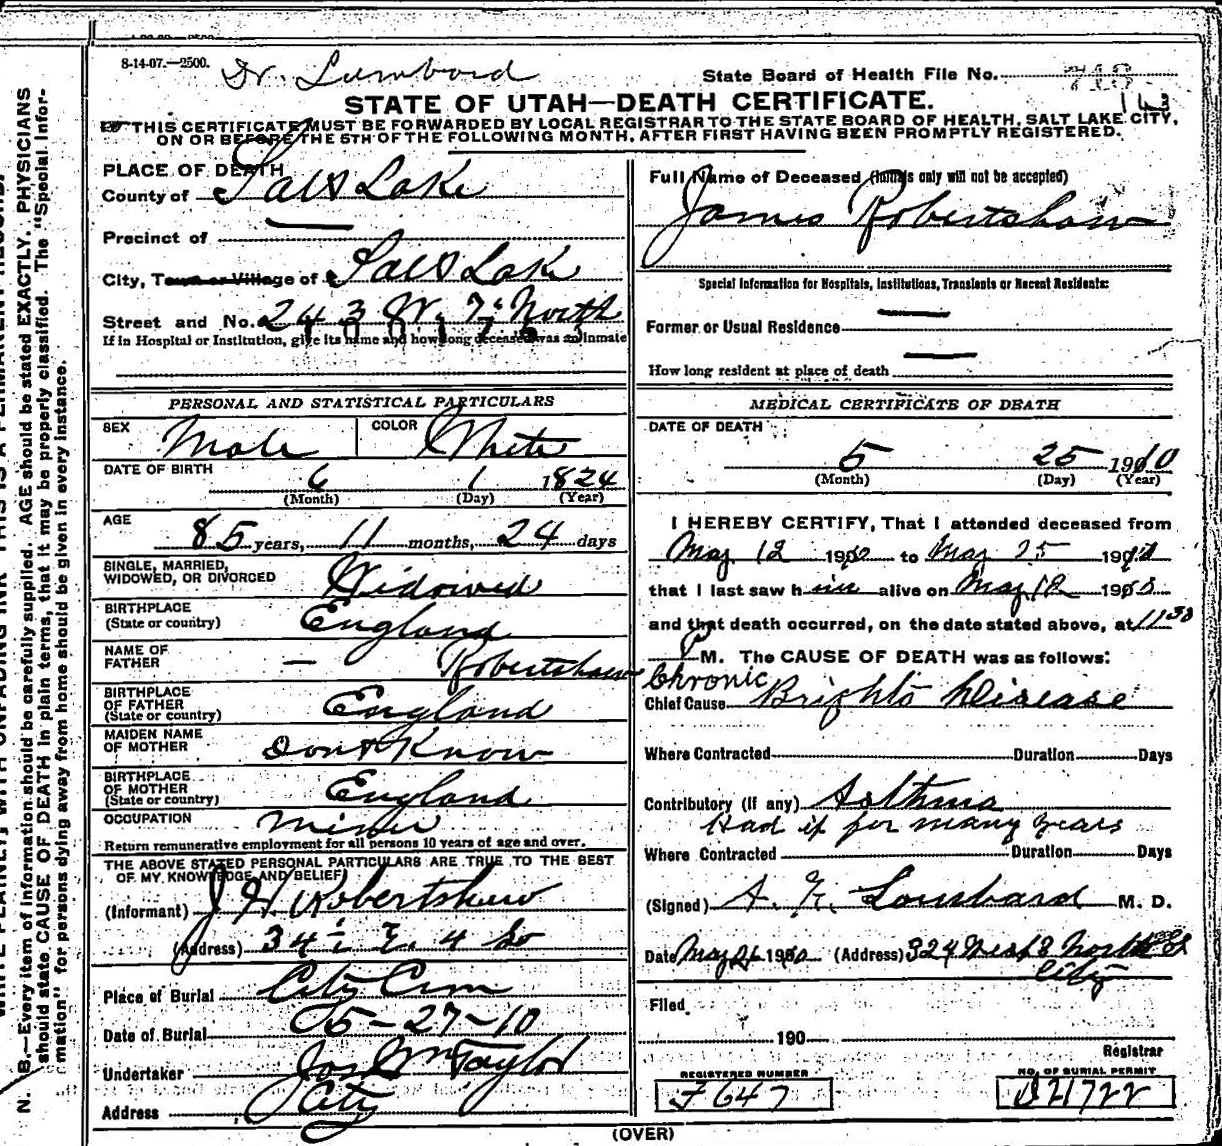 8-14-07.—2500.
Dr. Lumbord
State Board of Health File No.
STATE OF UTAH—DEATH CERTIFICATE.
THIS CERTIFICATE MUST BE FORWARDED BY LOCAL REGISTRAR TO THE STATE BOARD OF HEALTH, SALT LAKE CITY,
ON OR BEFORE THE 5TH OF THE FOLLOWING MONTH, AFTER FIRST HAVING BEEN PROMPTLY REGISTERED.
PLACE OF DEATH
County of Salt Lake
Precinct of
City, Town or Village of Salt Lake
Street and No. 243 W. 7th North
If in Hospital or Institution, give its name and how long deceased was an inmate
PERSONAL AND STATISTICAL PARTICULARS
SEX Male COLOR White
DATE OF BIRTH 6 1 1824
(Month) (Day) (Year)
AGE 85 years, 11 months, 24 days
SINGLE, MARRIED,
WIDOWED, OR DIVORCED Widowed
BIRTHPLACE
(State or country) England
NAME OF
FATHER — Robertshaw
BIRTHPLACE
OF FATHER
(State or country) England
MAIDEN NAME
OF MOTHER Dont Know
BIRTHPLACE
OF MOTHER
(State or country) England
OCCUPATION Miner
Return remunerative employment for all persons 10 years of age and over.
THE ABOVE STATED PERSONAL PARTICULARS ARE TRUE TO THE BEST
OF MY KNOWLEDGE AND BELIEF
(Informant) J. H. Robertshaw
(Address) 34 E. 4 So
Place of Burial City Cem
Date of Burial 5-27-10
Undertaker Jos Wm Taylor
Address City
Full Name of Deceased (Initials only will not be accepted)
James Robertshaw
Special Information for Hospitals, Institutions, Transients or Recent Residents:
Former or Usual Residence —
How long resident at place of death —
MEDICAL CERTIFICATE OF DEATH
DATE OF DEATH
5 25 1910
(Month) (Day) (Year)
I HEREBY CERTIFY, That I attended deceased from
May 12 1910 to May 25 1910
that I last saw h im alive on May 12 1910
and that death occurred, on the date stated above, at 11 30
P M. The CAUSE OF DEATH was as follows:
Chronic
Chief Cause Brights Disease
Where Contracted Duration Days
Contributory (if any) Asthma
Had it for many years
Where Contracted Duration Days
(Signed) A. G. Lumbard M. D.
Date May 26 1910 (Address) 324 West 8 North St
City
Filed
190
Registrar
REGISTERED NUMBER
F 647
NO. OF BURIAL PERMIT
D21722
(OVER)
N. B.—Every item of Information should be carefully supplied. AGE should be stated EXACTLY. PHYSICIANS
should state CAUSE OF DEATH in plain terms, that it may be properly classified. The "Special Infor-
mation" for persons dying away from home should be given in every instance.